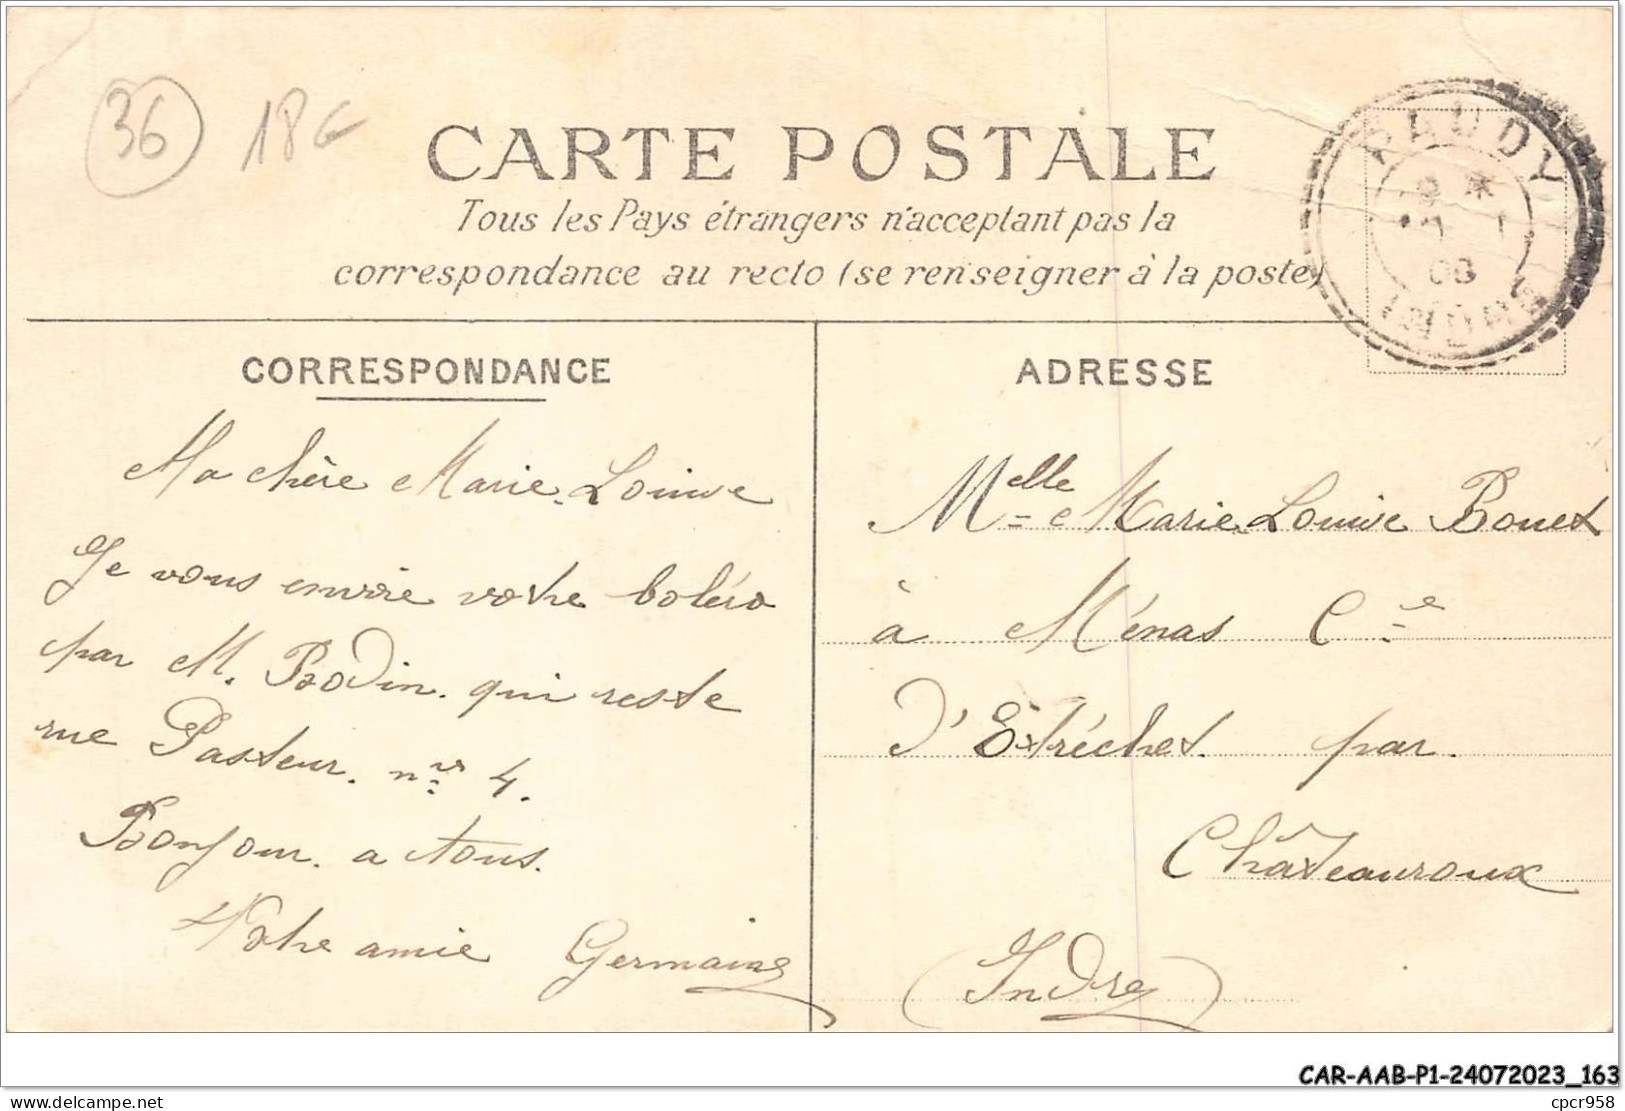 36
18€
CARTE POSTALE
Tous les Pays étrangers n'acceptant pas la
correspondance au recto (se renseigner à la poste)
PAUDY
INDRE
CORRESPONDANCE
Ma chère Marie-Louise
Je vous envoie votre boléro
par M. Bodin. qui reste
rue Pasteur. nº 4.
Bonjour. a tous.
Votre amie Germaine
ADRESSE
Melle Marie-Louise Bonet
à Ménas Cne
d'Etréchet. par.
Châteauroux
(Indre)
CAR-AAB-P1-24072023_163
delcampe.net
cpcr958